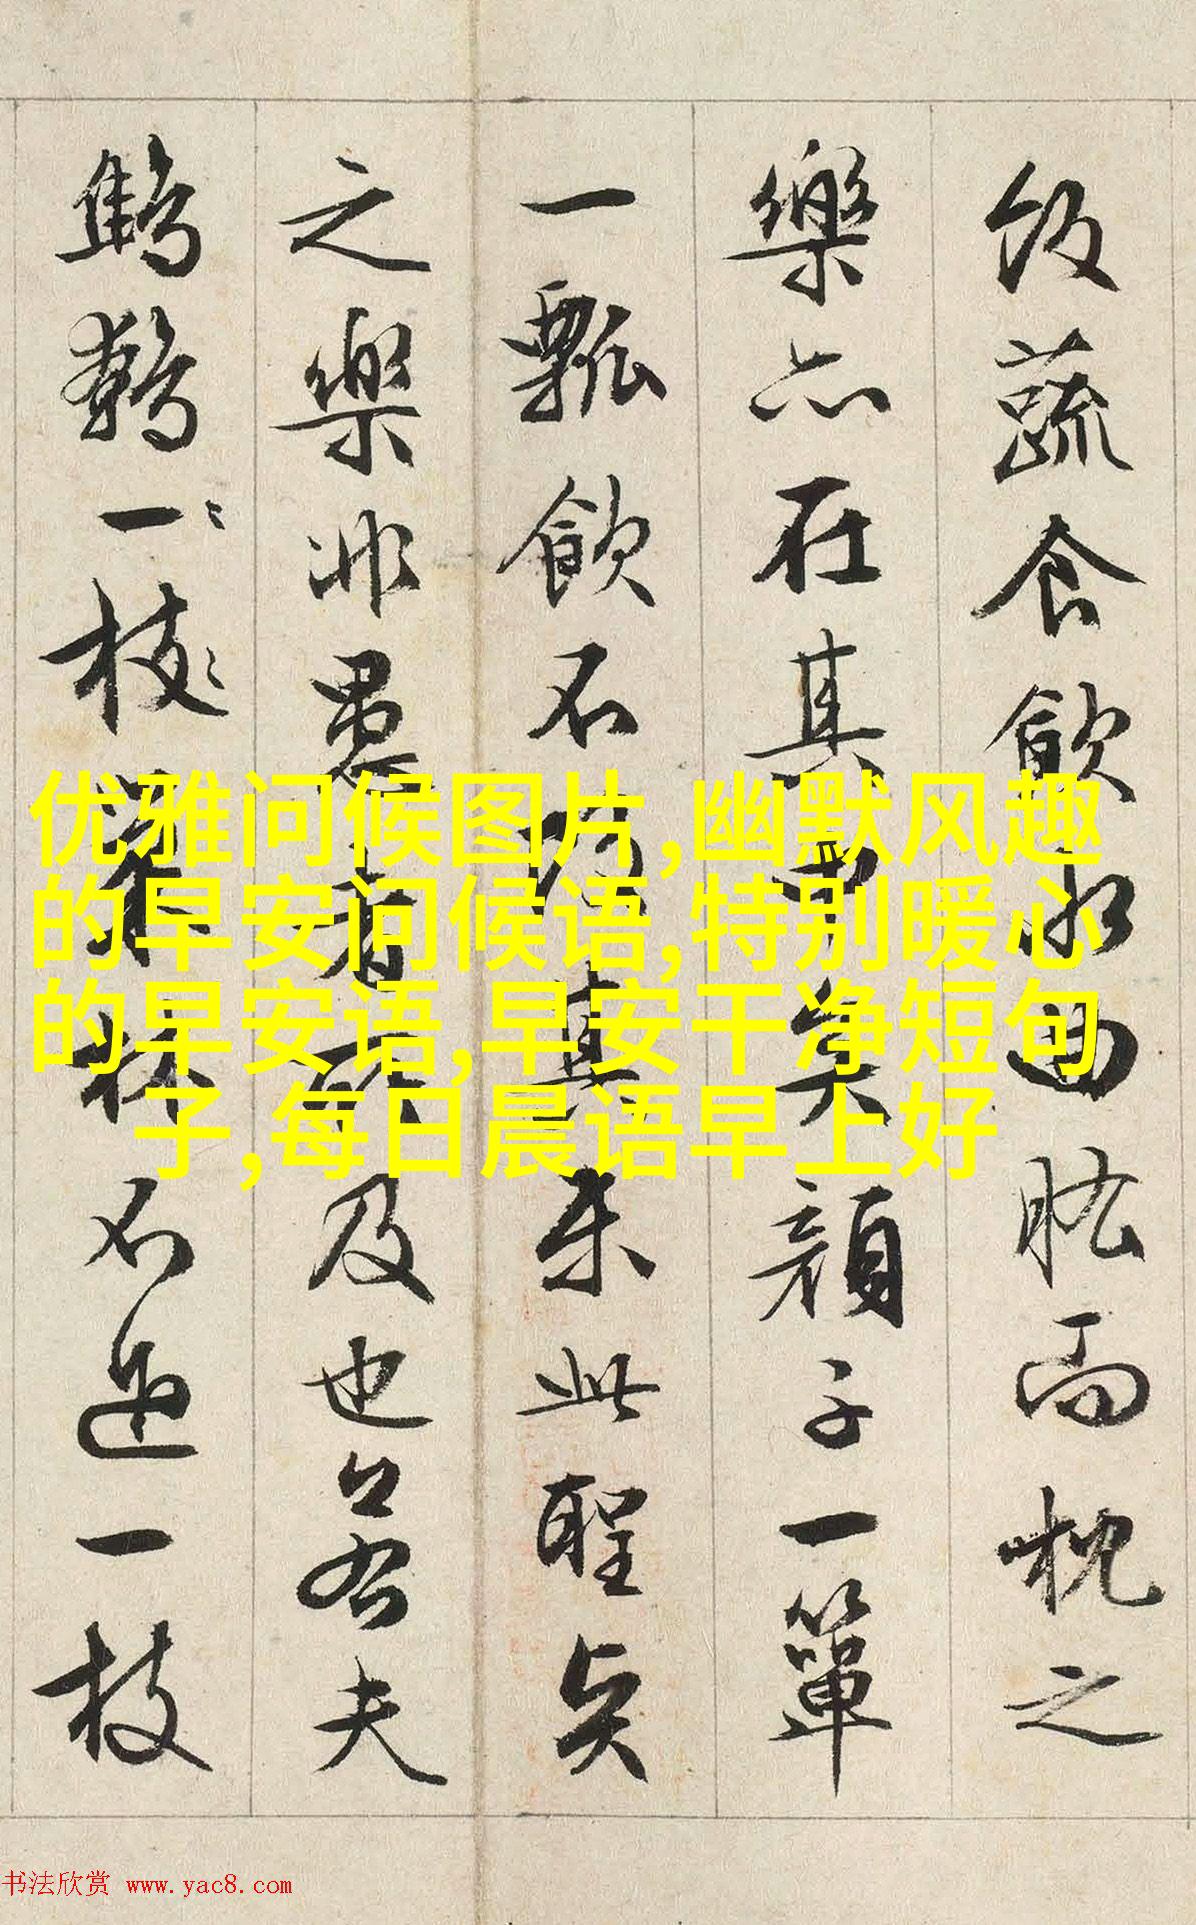 飯蔬食飲水曲肱而枕之
樂亦在其中矣顏子一簞
一瓢飲不改其樂此聖賢
之樂非愚者所及也若夫
鷦鷯一枝巢林不過一枝
优雅问候图片,幽默风趣
的早安问候语,特别暖心
的早安语,早安干净短句
子,每日晨语早上好
书法欣赏 www.yac8.com